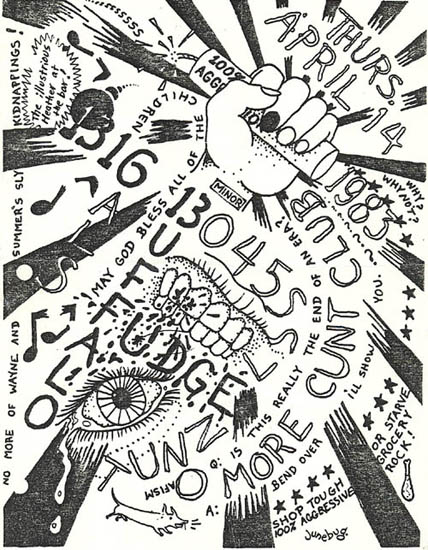 THURS.
APRIL 14
1983
WHY?
WHY NOT?
NO MORE OF WAYNE AND SUMMER'S SLY KIDNAPPINGS!
The illustrious
at
the bar!
100%
1316
MAY GOD BLESS ALL OF THE CHILDREN
MINOR
FUDGE
TUNZ
NO MORE CUNT CLUB
Q: IS THIS REALLY THE END OF AN ERA?
A: BEND OVER I'LL SHOW YOU.
SHOP TOUGH
100% AGGRESSIVE
OR STARVE
GROCERY
ROCK!
Junebug